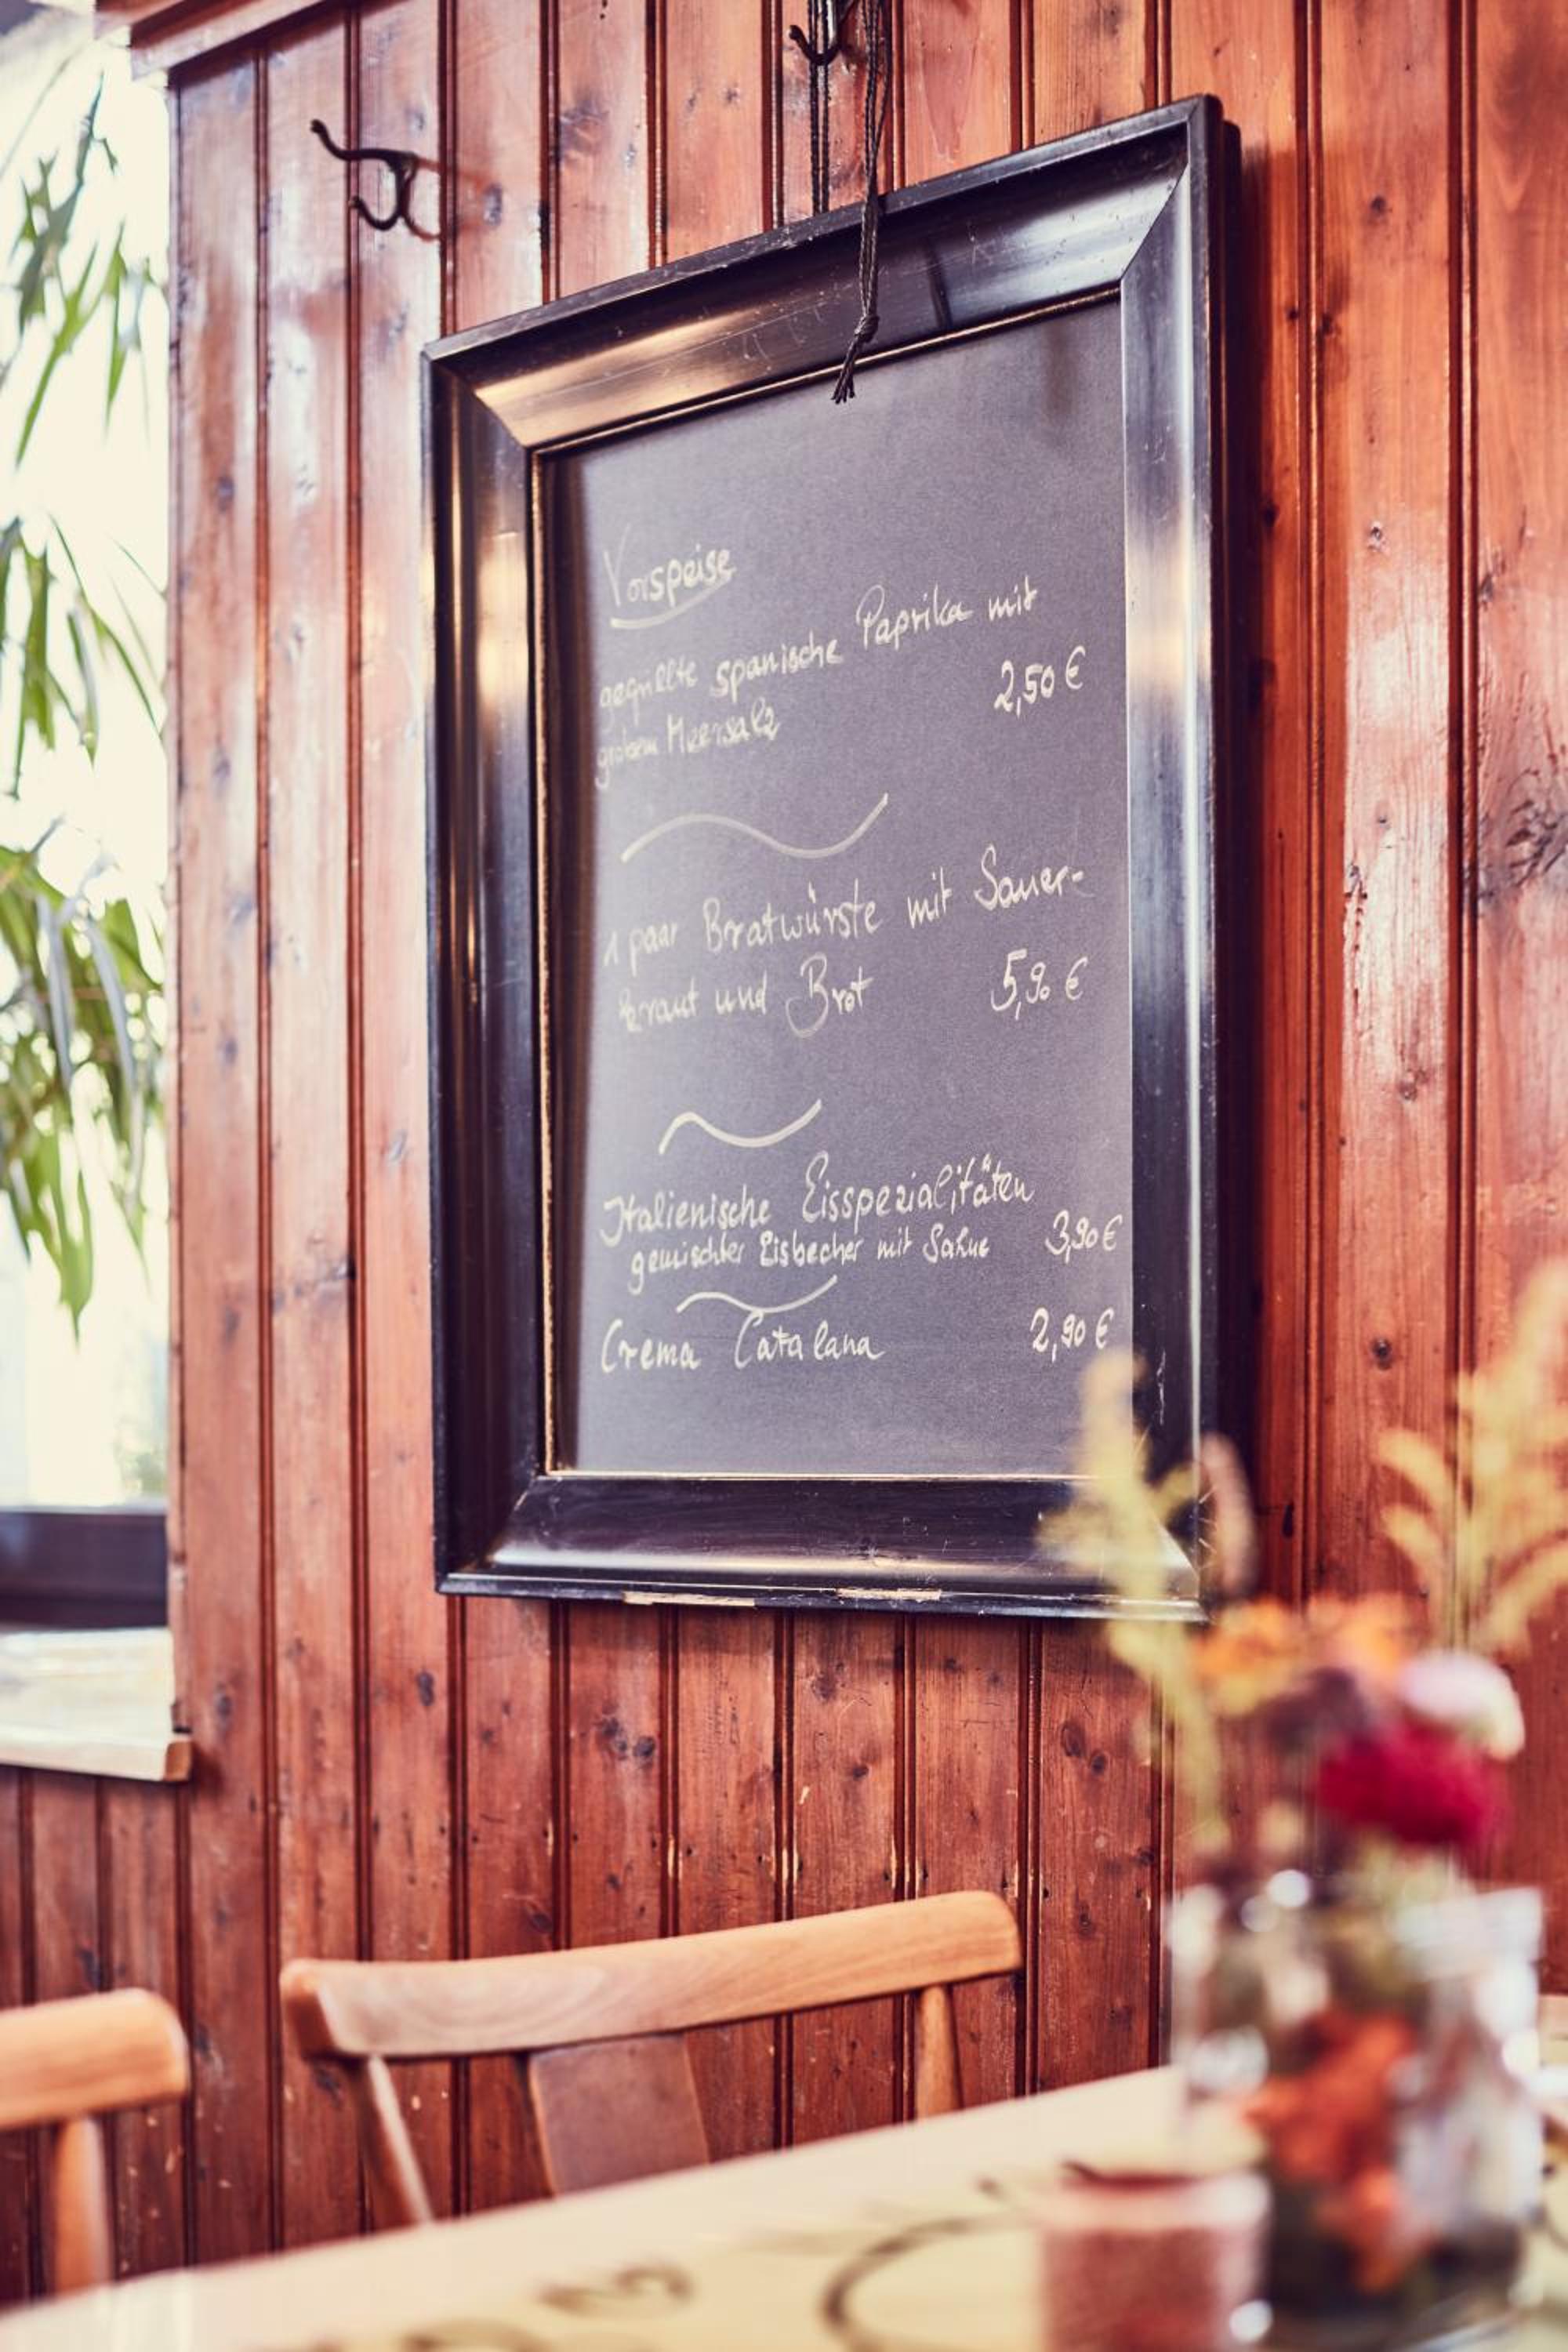 Vorspeise
gegrillte spanische Paprika mit
grobem Meersalz 2,50 €
1 paar Bratwürste mit Sauer-
kraut und Brot 5,90 €
Italienische Eisspezialitäten
gemischter Eisbecher mit Sahne 3,90 €
Crema Catalana 2,90 €